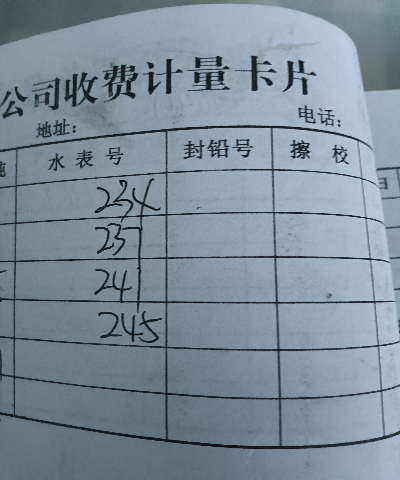 公司收费计量卡片
地址： 电话：
吨 水表号 封铅号 擦校
234
237
241
245